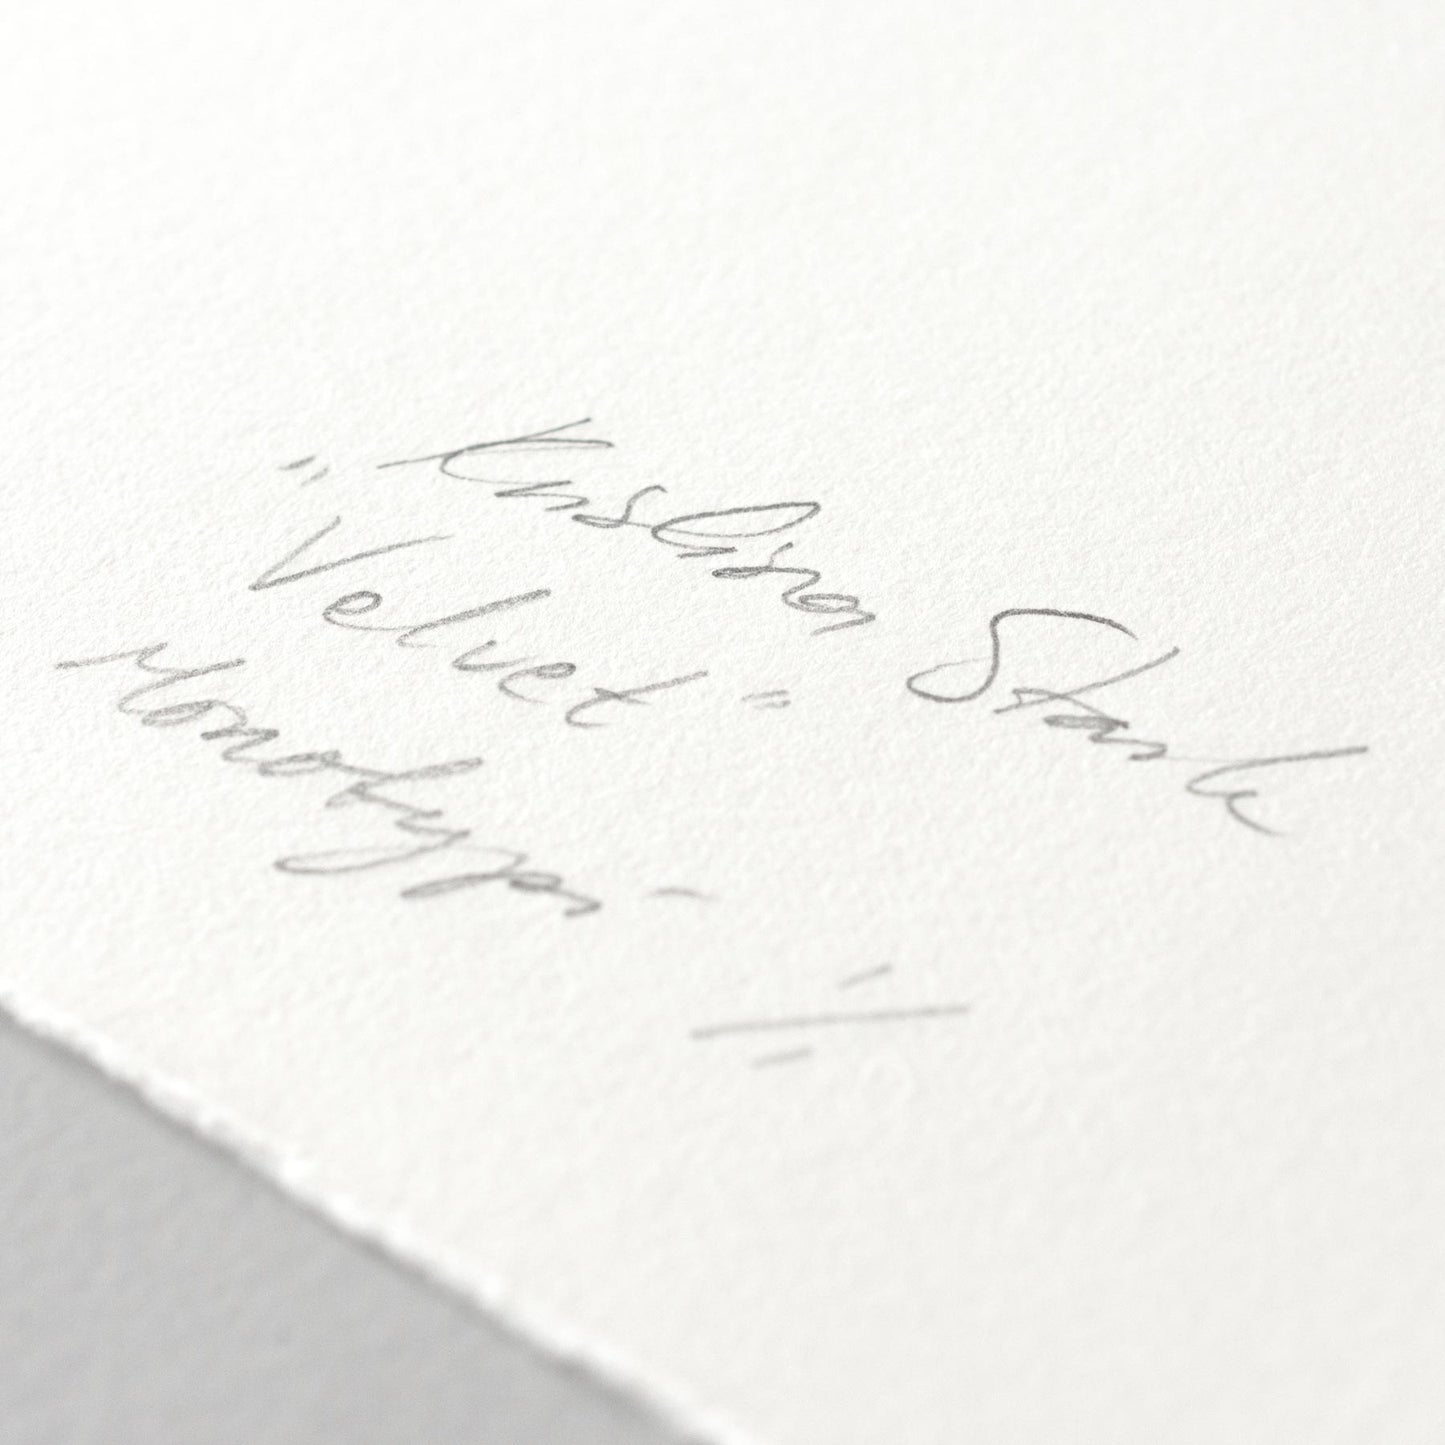 Kristina Stark
"Velvet"
Monotypi -